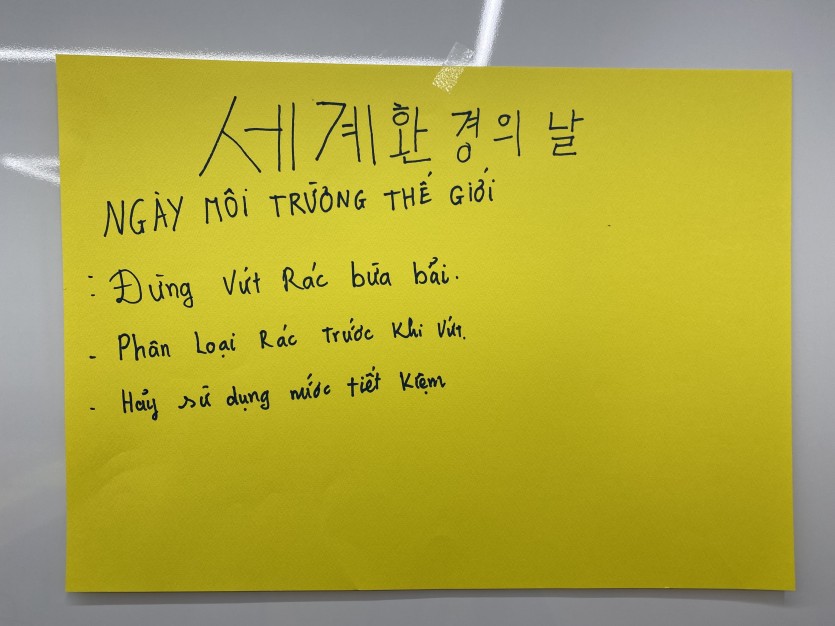 세계환경의 날
NGÀY MÔI TRƯỜNG THẾ GIỚI
- Đừng Vứt Rác bừa bải.
- Phân Loại Rác Trước Khi Vứt.
- Hảy sử dụng nước tiết Kiệm